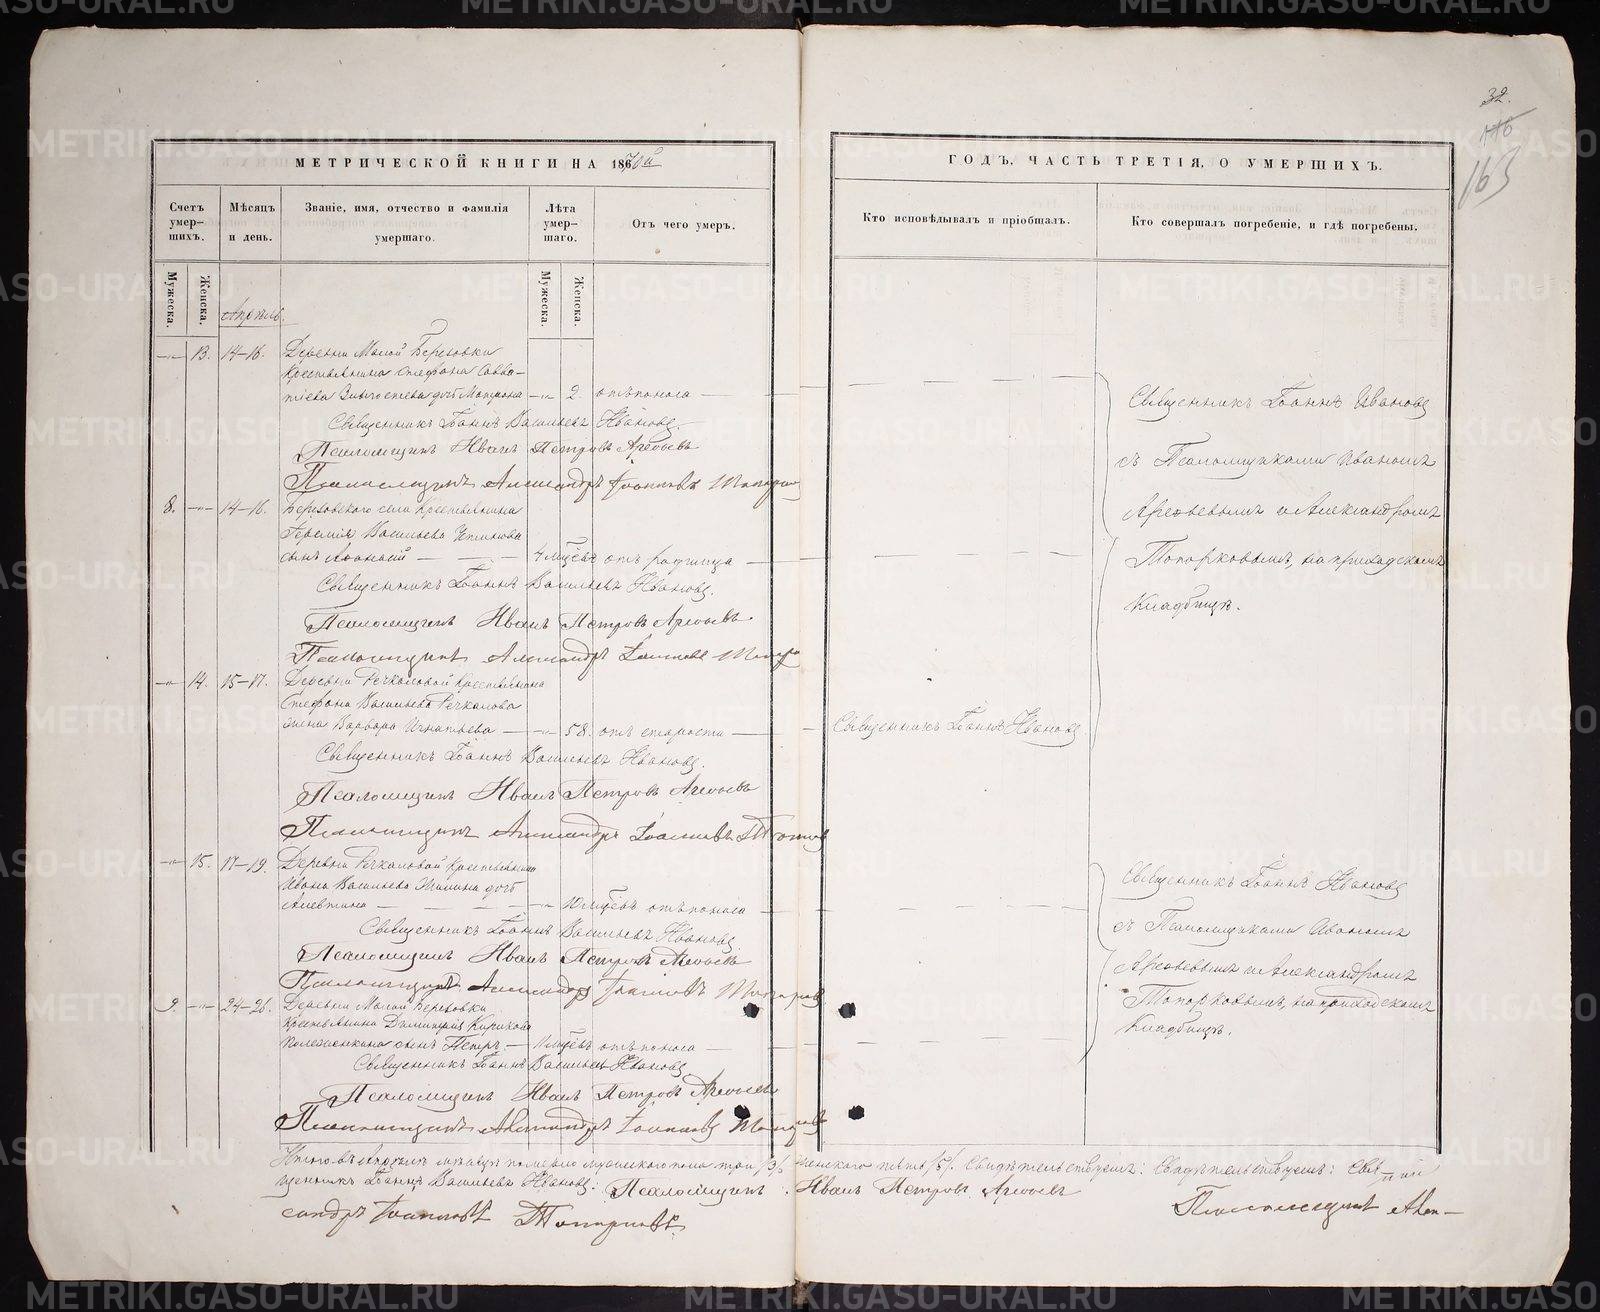 32.
116
163
МЕТРИЧЕСКОЙ КНИГИ НА 1870й
ГОДЪ, ЧАСТЬ ТРЕТІЯ, О УМЕРШИХЪ.
Счетъ умер–шихъ.
Мѣсяцъ и день.
Званіе, имя, отчество и фамилія умершаго.
Лѣта умер–шаго.
Отъ чего умеръ.
Кто исповѣдывалъ и пріобщалъ.
Кто совершалъ погребеніе, и гдѣ погребены.
Мужеска.
Женска.
Мужеска.
Женска.
Апрѣль.
13. 14–16. Деревни Малой Березовки
Крестьянина Стефана Савва–
тіева дочь Матрона 2. отъ поноса
Священникъ Іоаннъ Васильевъ Ивановъ.
Псаломщикъ Иванъ Петровъ Арефьевъ
Псаломщикъ Александръ Іоанновъ Топорков
Священникъ Іоаннъ Ивановъ
съ Псаломщиками Иваномъ
Арефьевымъ и Александромъ
Топорковымъ, на приходскомъ
Кладбищѣ.
8. 14–16. Березовскаго села Крестьянина
Васильева
сынъ Афанасій 4 мѣсяцѣвъ отъ родимца
Священникъ Іоаннъ Васильевъ Ивановъ.
Псаломщикъ Иванъ Петровъ Арефьевъ
Псаломщикъ Александръ Іоанновъ
14. 15–17. Деревни Речкаловой Крестьянина
Стефана Васильева Речкалова
жена Варвара Игнатьева 58. отъ старости
Священникъ Іоаннъ Ивановъ
Священникъ Іоаннъ Васильевъ Ивановъ.
Псаломщикъ Иванъ Петровъ Арефьевъ
Псаломщикъ Александръ Іоанновъ
15. 17–19. Деревни Речкаловой Крестьянина
Ивана Васильева дочь
Алевтина 10 мѣсяцѣвъ отъ поноса
Священникъ Іоаннъ Васильевъ Ивановъ
Псаломщикъ Иванъ Петровъ Арефьевъ
Псаломщикъ Александръ Іоанновъ
Священникъ Іоаннъ Ивановъ
съ Псаломщиками Иваномъ
Арефьевымъ и Александромъ
Топорковымъ, на приходскомъ
Кладбищѣ.
9. 24–26. Деревни Малой Березовки
Крестьянина Димитрія
сынъ Петръ отъ поноса
Священникъ Іоаннъ Васильевъ Ивановъ
Псаломщикъ Иванъ Петровъ Арефьевъ
Псаломщикъ Александръ Іоанновъ
Итого въ Апрѣлѣ мѣсяцѣ померло мужескаго пола три /3/ женскаго пять /5/. Свидѣтельствуемъ: Свидѣтельствуемъ: Свя–
щенникъ Іоаннъ Васильевъ Ивановъ. Псаломщикъ Иванъ Петровъ Арефьевъ Псаломщикъ Алек–
сандръ Іоанновъ Топорковъ
METRIKI.GASO-URAL.RU